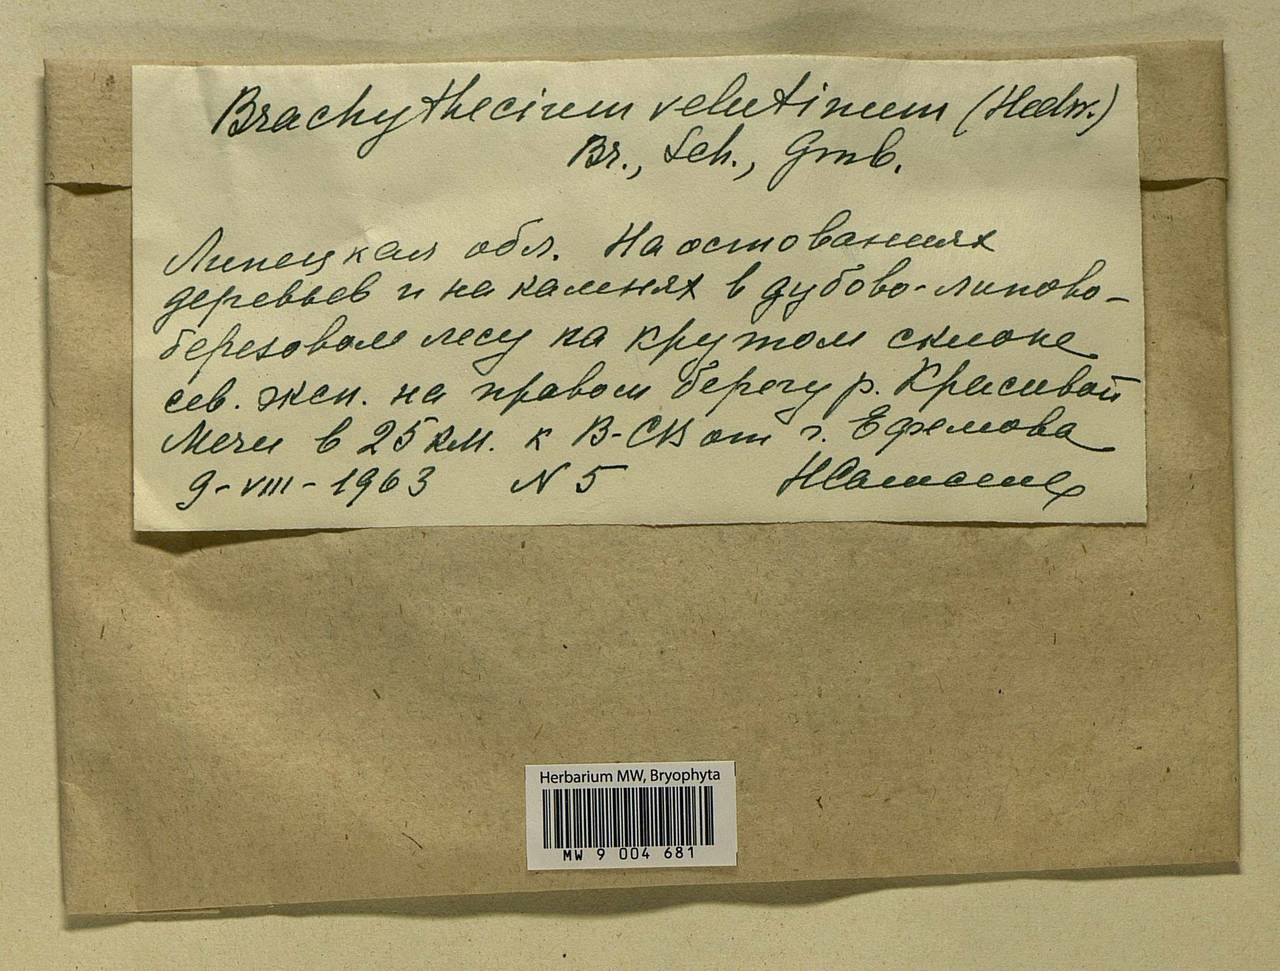 Brachythecium velutinum (Hedw.)
Br., Sch., Gmb.
Липецкая обл. На основаниях
деревьев и на камнях в дубово-липово-
березовом лесу на крутом склоне
сев. эксп. на правом берегу р. Красивой
Мечи в 25 км. к В-СВ от г. Ефремова
9-VIII-1963 N 5
Herbarium MW, Bryophyta
MW 9 004 681